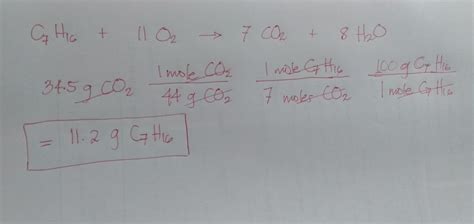 C₇H₁₆ + 11 O₂ → 7 CO₂ + 8 H₂O
34.5 g CO₂ 1 mole CO₂ / 44 g CO₂ 1 mole C₇H₁₆ / 7 moles CO₂ 100 g C₇H₁₆ / 1 mole C₇H₁₆
= 11.2 g C₇H₁₆